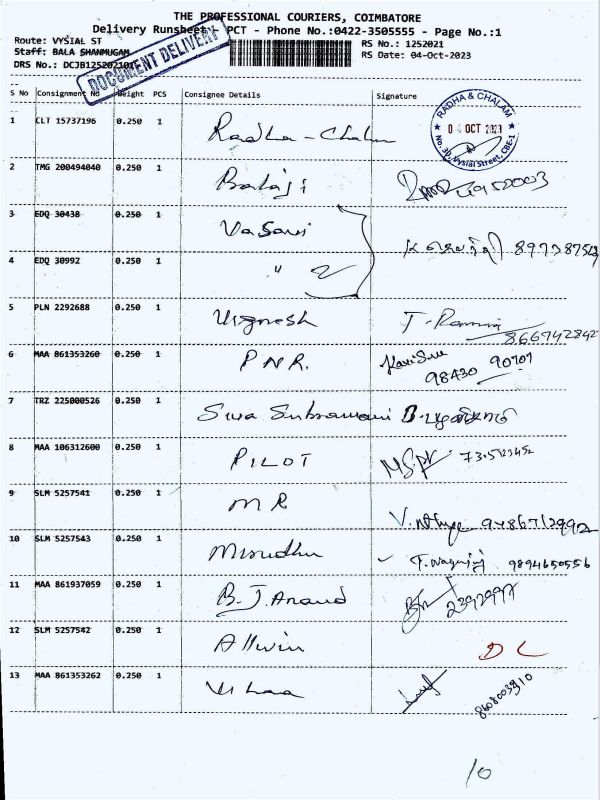 THE PROFESSIONAL COURIERS, COIMBATORE
Delivery Runsheet - PCT - Phone No.:0422-3505555 - Page No.:1
Route: VYSIAL ST
RS No.: 1252021
Staff: BALA SHANMUGAM
RS Date: 04-Oct-2023
DRS No.: DCJB125202101
DOCUMENT DELIVERY
S No Consignment No Weight PCS Consignee Details Signature
1 CLT 15737196 0.250 1 Radha - Chalm
RADHA & CHALAM
04 OCT 2023
No. 30, Vysial Street, CBE-1
2 TMG 200494040 0.250 1 Balaji
3 EDQ 30438 0.250 1 Vasavi
4 EDQ 30992 0.250 1 "
5 PLN 2292688 0.250 1 Vignesh
866742842
6 MAA 861353260 0.250 1 PNR.
98430 90707
7 TRZ 225000526 0.250 1 Siva Subramani
8 MAA 106312600 0.250 1 PILOT
9 SLM 5257541 0.250 1 MR
10 SLM 5257543 0.250 1 Mirudhu
9894650556
11 MAA 861937059 0.250 1 B.J. Anand
2392997
12 SLM 5257542 0.250 1 Allwin DL
13 MAA 861353262 0.250 1
8608003910
10